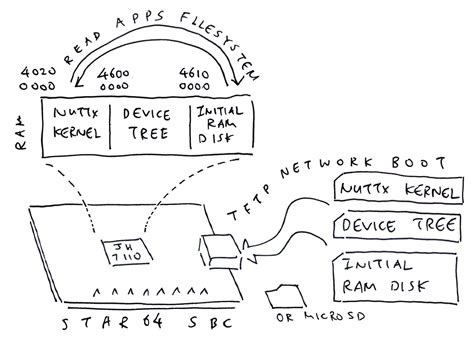 READ APPS FILESYSTEM
4020 0000
4600 0000
4610 0000
RAM
NUTTX KERNEL
DEVICE TREE
INITIAL RAM DISK
TFTP NETWORK BOOT
NUTTX KERNEL
DEVICE TREE
INITIAL RAM DISK
JH 7110
OR MICROSD
STAR64 SBC